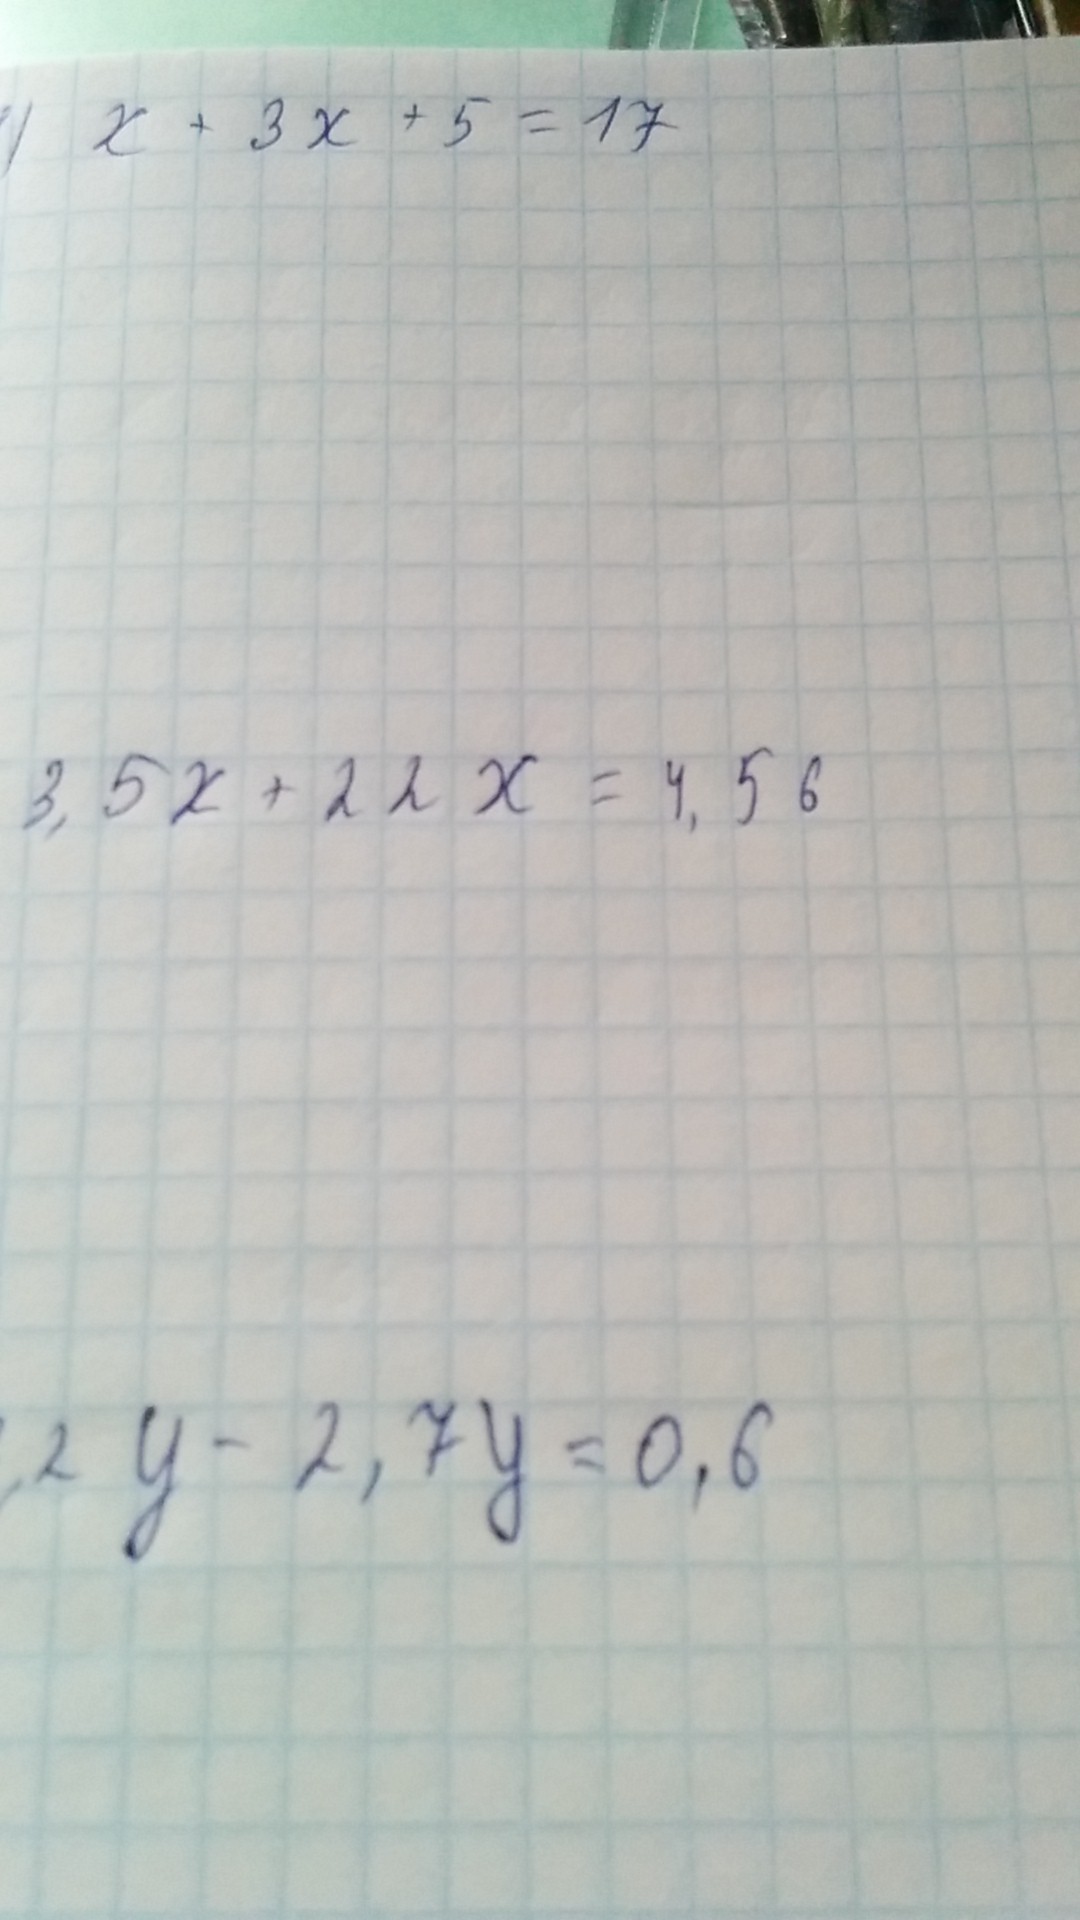 x + 3x + 5 = 17
3,5x + 22x = 4,56
,2y - 2,7y = 0,6